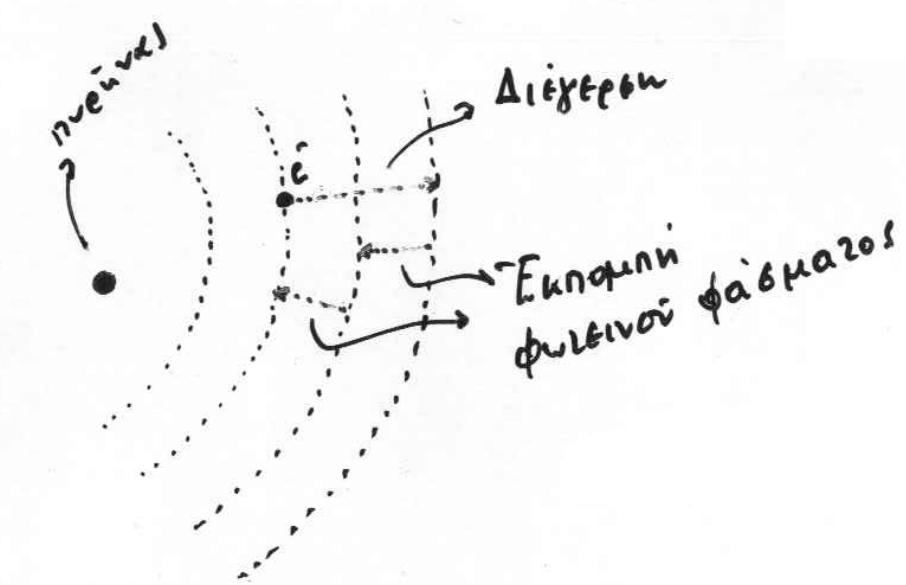 πυρήνας
Διέγερση
e⁻
Ἐκπομπή
φωτεινοῦ φάσματος